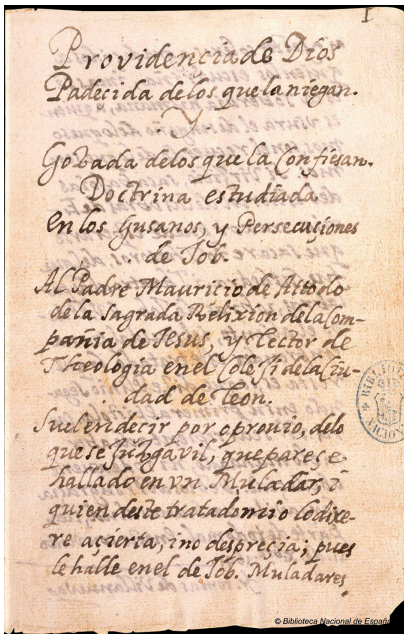 1
Providencia de Dios
Padecida de los que la niegan.
Y
Gozada de los que la Confiesan.
Doctrina estudiada
en los Gusanos, y Persecuçiones
de Job.
Al Padre Mauricio de Attodo
de la Sagrada Relixion de la Com-
pañia de Jesus, y Lector de
Theologia en el Colesi de la Ciu-
dad de Leon.
Suelen decir por oprovio, de lo
que se juzga vil, que pareçe
hallado en vn Muladar, i
quien deste tratado mio lo dixe-
re açierta, i no despreçia; pues
le halle en el de Job. Muladares
BIBLIO
© Biblioteca Nacional de España